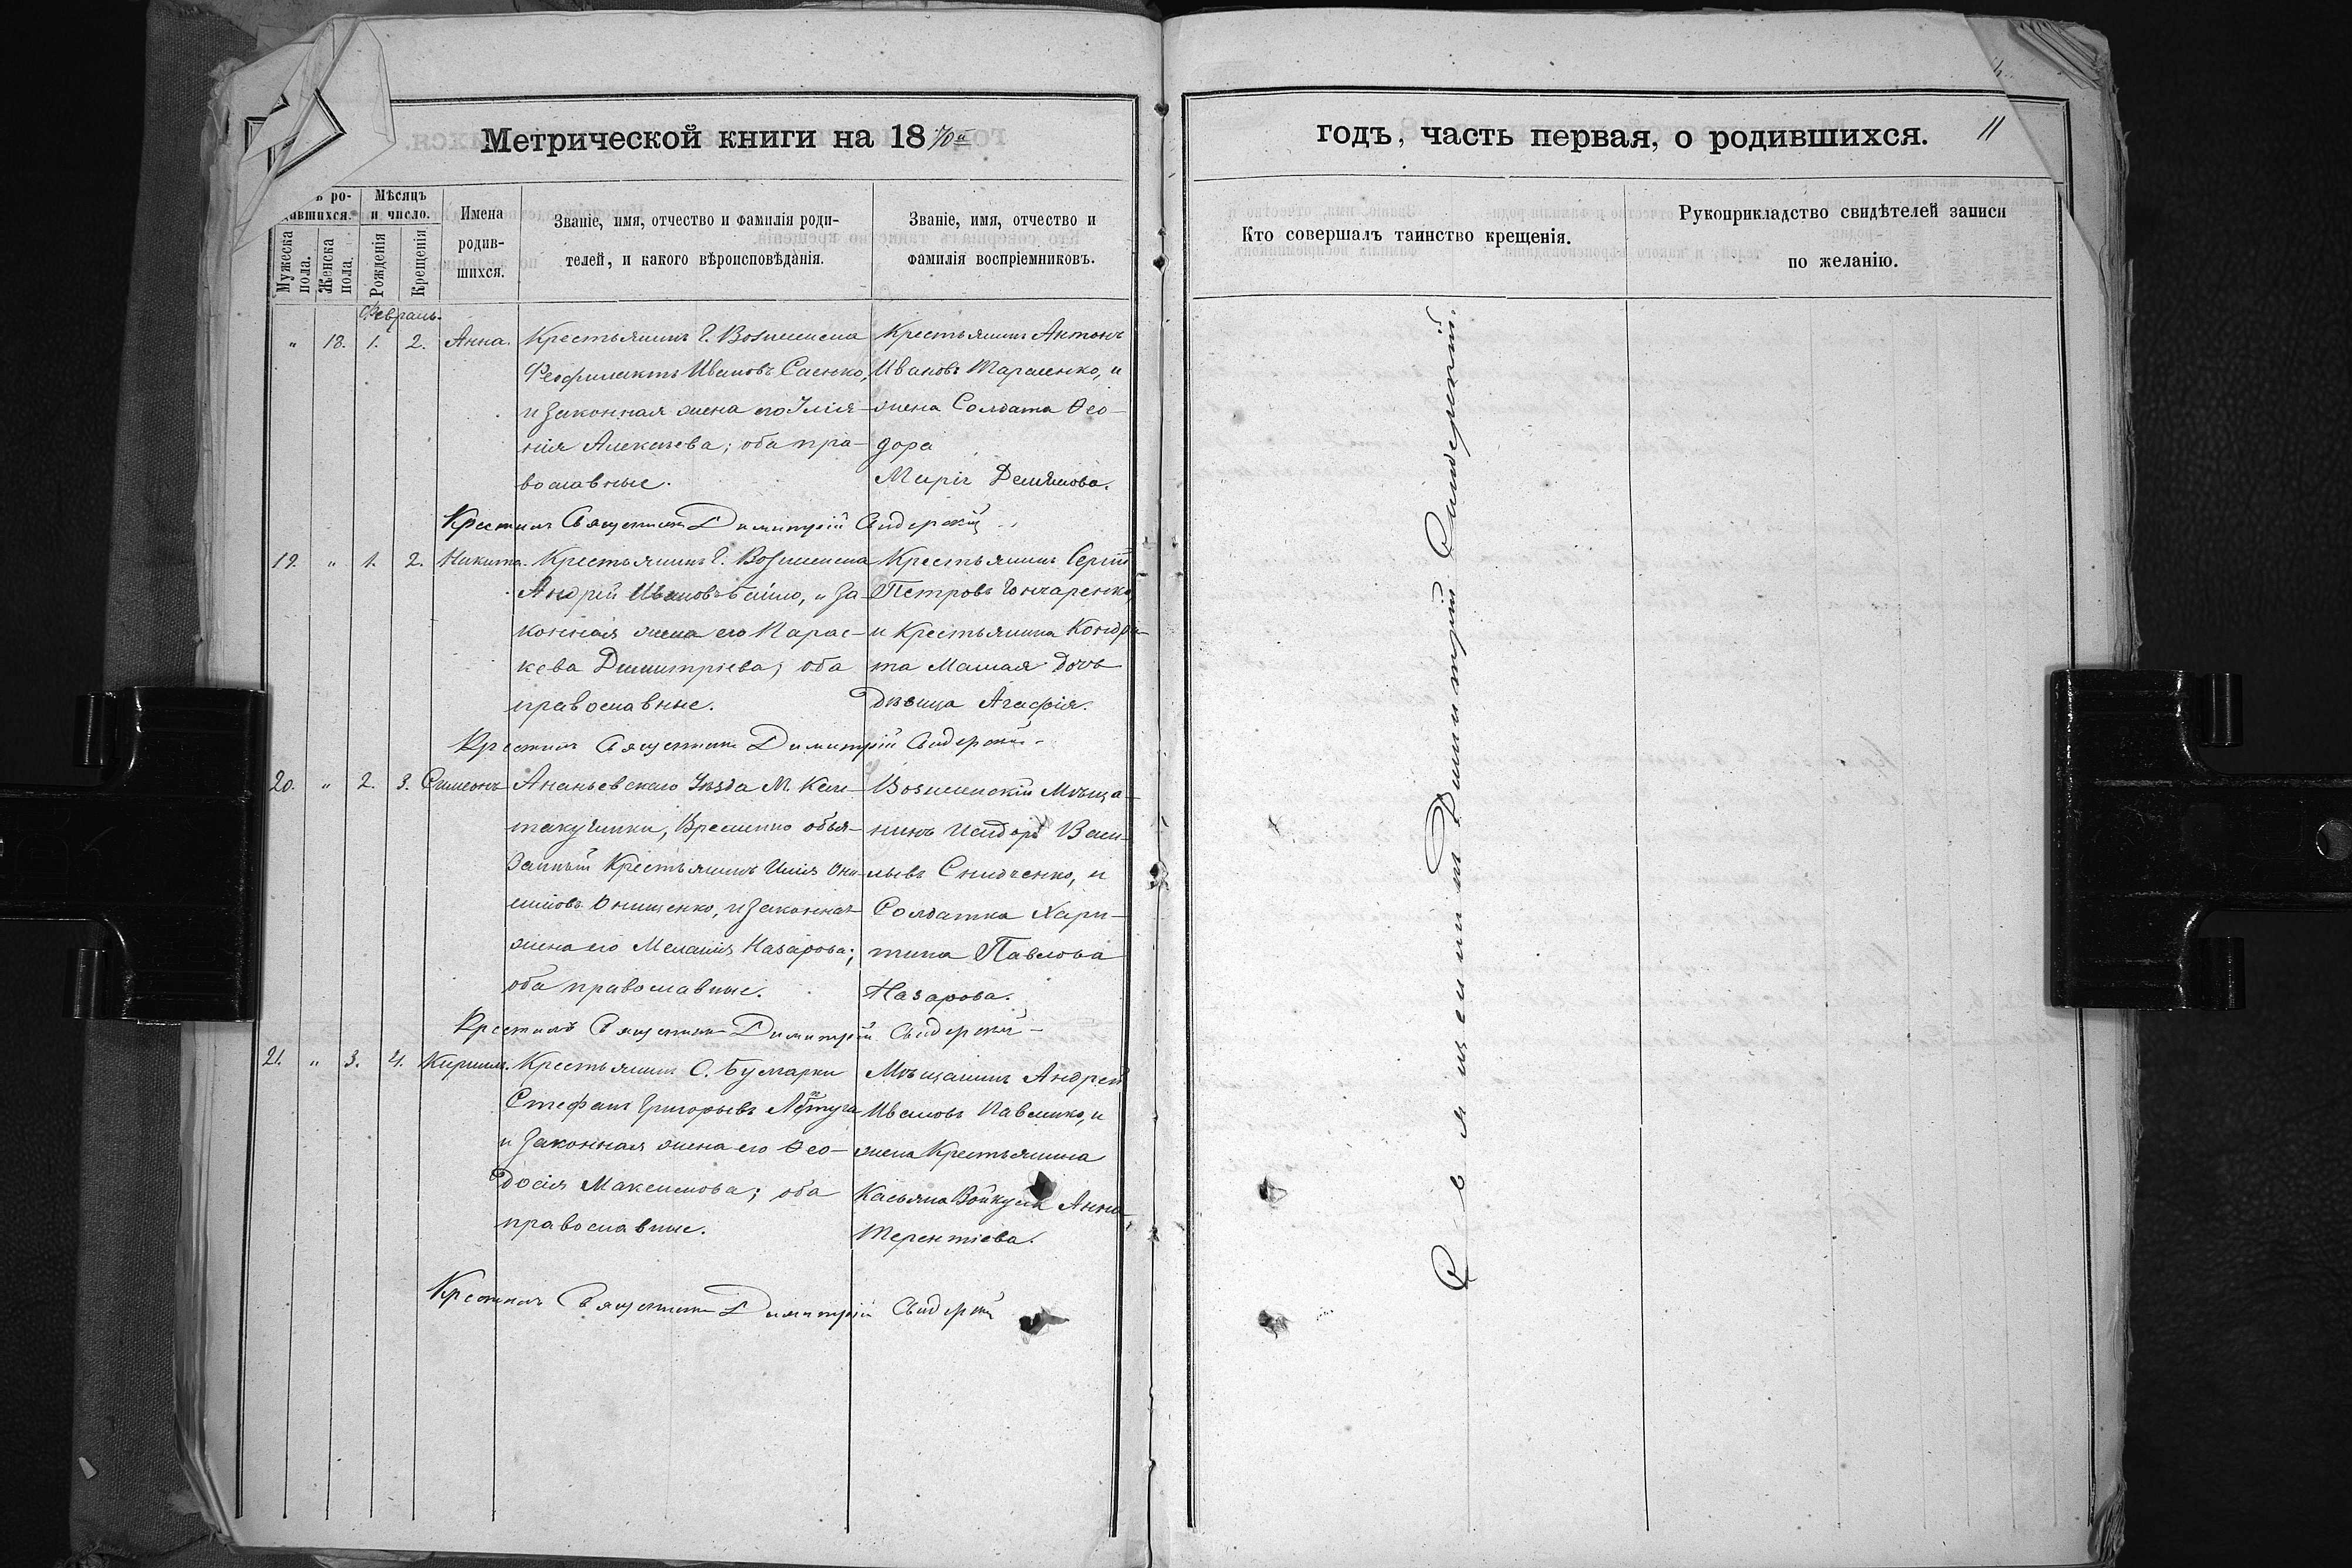 Метрической книги на 1870й
годъ, часть первая, о родившихся. 11
ъ ро-
дившихся.
Мужеска пола.
Женска пола.
Мѣсяцъ и число.
Рожденія
Крещенія
Имена родив-
шихся.
Званіе, имя, отчество и фамилія роди-
телей, и какого вѣроисповѣданія.
Званіе, имя, отчество и
фамилія воспріемниковъ.
Кто совершалъ таинство крещенія.
Рукоприкладство свидѣтелей записи
по желанію.
Февраль.
" 18. 1. 2. Анна.
Крестьянинъ Г. Вознесенска
Феофилактъ Ивановъ Саенко,
и законная жена его Іулія-
нія Алексѣева; оба пра-
вославные.
Крестьянинъ Антонъ
Ивановъ Тараненко, и
жена Солдата Ѳео-
дора
Марія Демянова.
Крестилъ Священникъ Димитрій Свидерскій
19. " 1. 2. Никита.
Крестьянинъ Г. Вознесенска
Андрій Ивановъ, и за-
конная жена его Парас-
кева Димитріева; оба
православные.
Крестьянинъ Сергій
Петровъ Гончаренко,
и Крестьянина Кондра-
та дочь
дѣвица Агафія.
Крестилъ Священникъ Димитрій Свидерскій
20. " 2. 3. Симеонъ
Ананьевскаго Уѣзда М. Кан-
такузинки, Временно обя-
занный Крестьянинъ Илія Они-
симовъ Онищенко, и законная
жена его Меланія Назарова;
оба православные.
Вознесенскій Мѣща-
нинъ Исидоръ Васи-
льевъ, и
Солдатка Хари-
тина Павлова
Назарова.
Крестилъ Священникъ Димитрій Свидерскій
21. " 3. 4. Кириллъ.
Крестьянинъ С. Булгарки
Стефанъ Григорьевъ
и законная жена его Ѳео-
досія Максимова; оба
православные.
Мѣщанинъ Андрей
Ивановъ Павленко, и
жена Крестьянина
Касьяна Войкула Анна
Терентіева.
Крестилъ Священникъ Димитрій Свидерскій
Священникъ Димитрій Свидерскій.